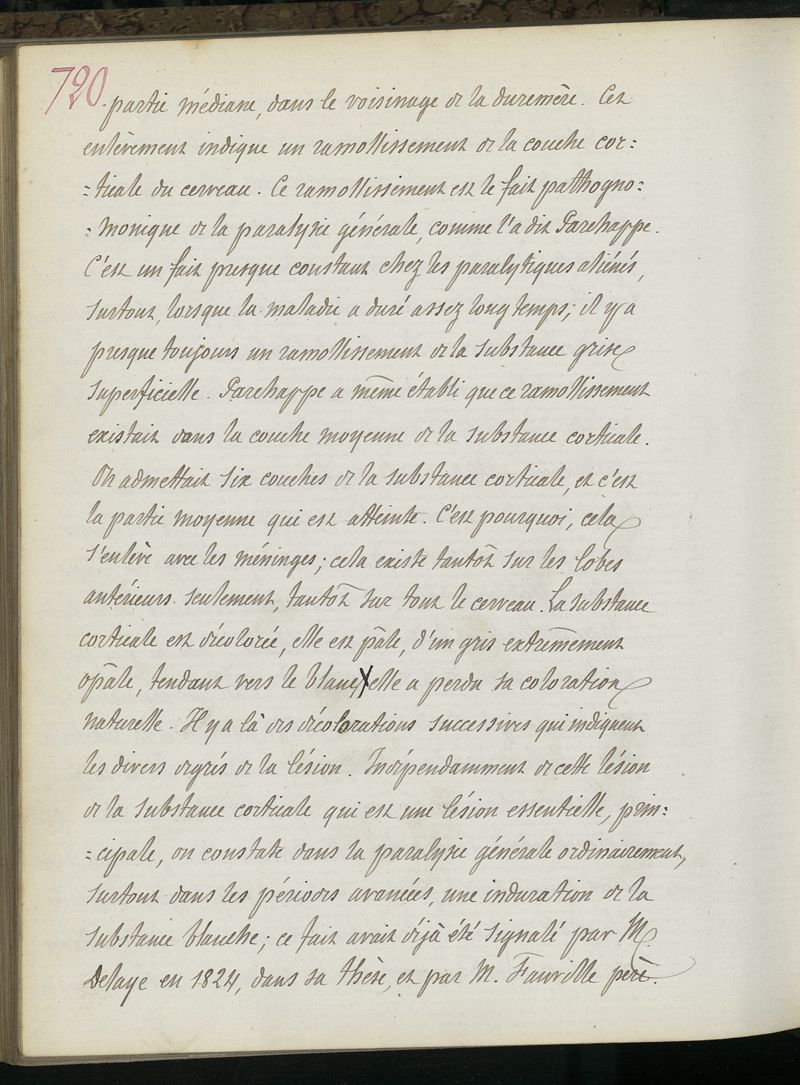 720
partie médiane, dans le voisinage de la duremère. Cet
enlèvement indique un ramollissement de la couche cor=
=ticale du cerveau. Ce ramollissement est le fait pathogno=
=monique de la paralysie générale, comme l'a dit Parchappe.
C'est un fait presque constant chez les paralytiques aliénés,
surtout, lorsque la maladie a duré assez long temps; il y a
presque toujours un ramollissement de la substance grise
superficielle. Parchappe a même établi que ce ramollissement
existait dans la couche moyenne de la substance corticale.
On admettait six couches de la substance corticale, et c'est
la partie moyenne qui est atteinte. C'est pourquoi, cela
s'enlève avec les méninges; cela existe tantôt sur les lobes
antérieurs seulement, tantôt sur tout le cerveau. La substance
corticale est décolorée, elle est pâle, d'un gris extrêmement
opâle, tendant vers le blanc, elle a perdu sa coloration
naturelle. Il y a là des décolorations successives qui indiquent
les divers degrés de la lésion. Indépendamment de cette lésion
de la substance corticale qui est une lésion essentielle, prin=
=cipale, on constate dans la paralysie générale ordinairement,
surtout dans les périodes avancées, une induration de la
substance blanche; ce fait avait déjà été signalé par M.
Delaye en 1824, dans sa thèse, et par M. Fauville père.